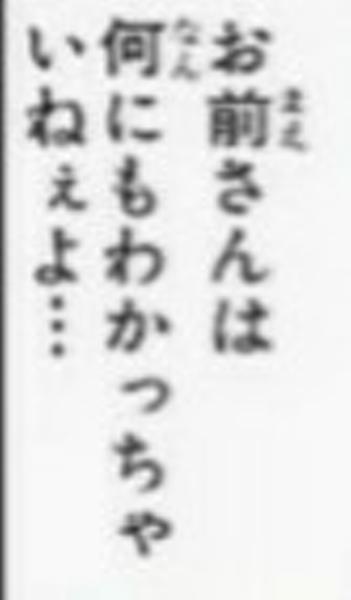 お前さんは
何にもわかっちゃ
いねぇよ…